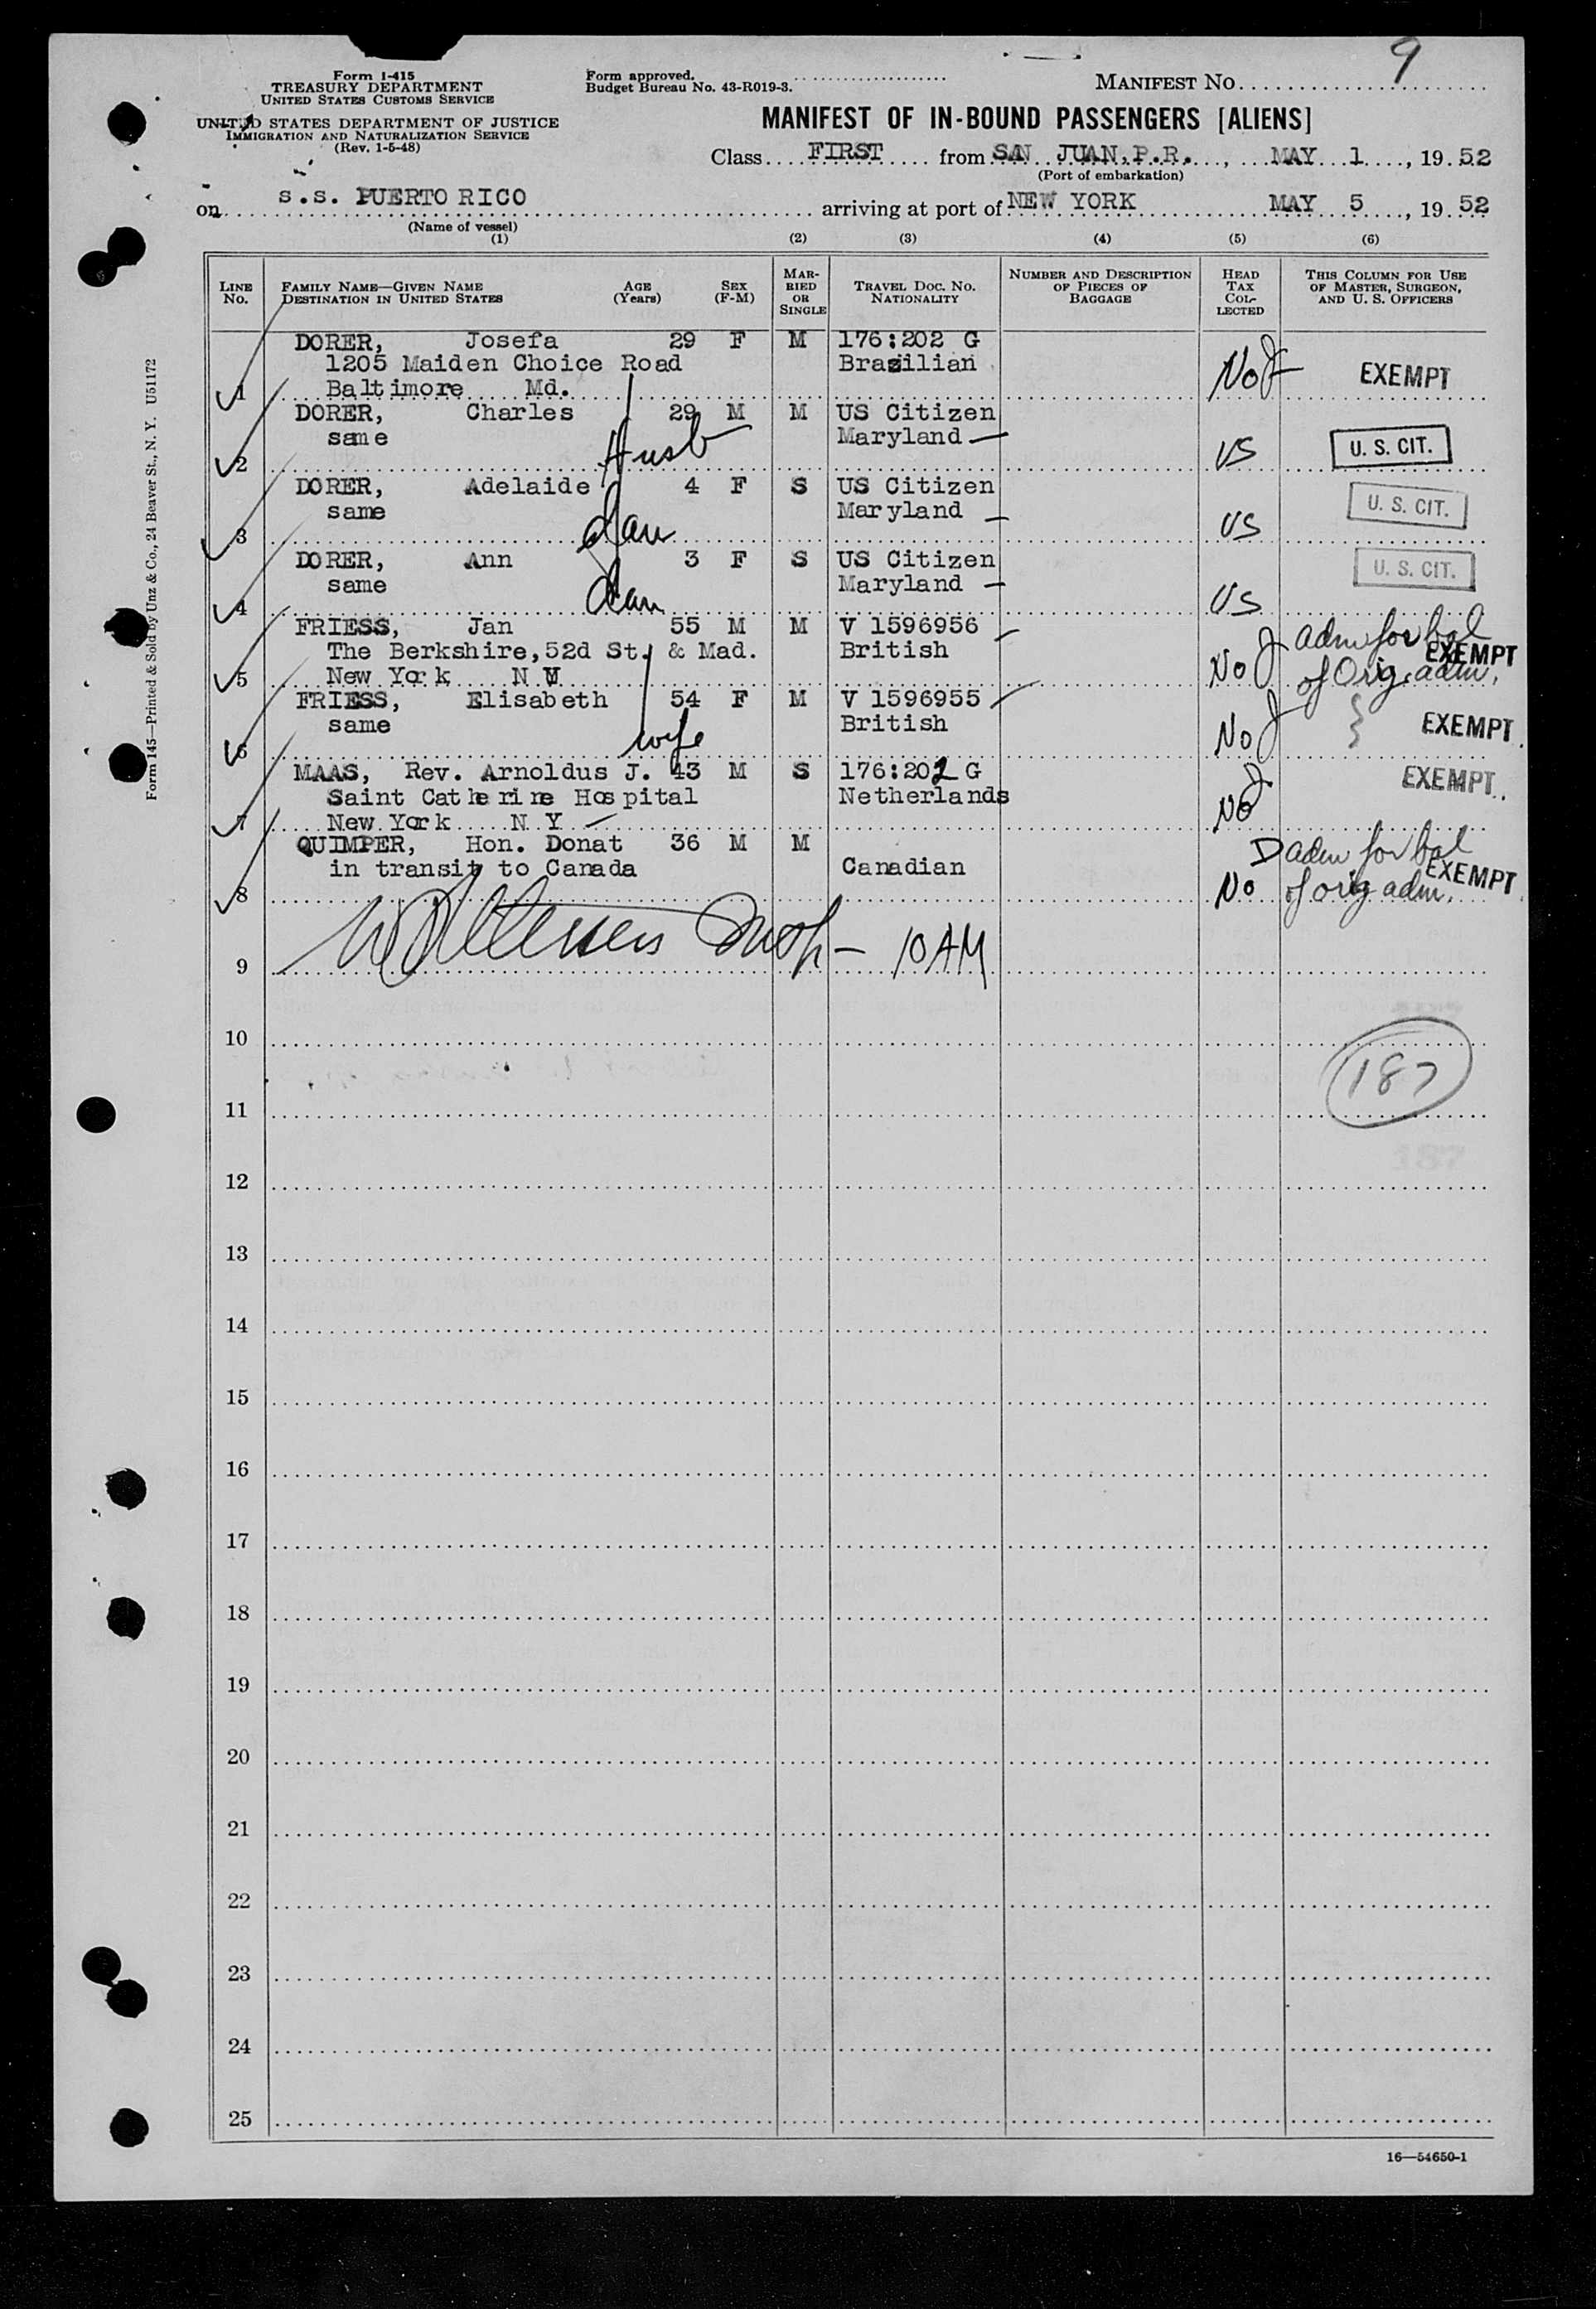 9
Form I-415
TREASURY DEPARTMENT
UNITED STATES CUSTOMS SERVICE
UNITED STATES DEPARTMENT OF JUSTICE
IMMIGRATION AND NATURALIZATION SERVICE
(Rev. 1-5-48)
Form approved.
Budget Bureau No. 43-R019-3.
MANIFEST NO.
MANIFEST OF IN-BOUND PASSENGERS [ALIENS]
Class FIRST from SAN JUAN, P.R., MAY 1, 19 52
(Port of embarkation)
on S.S. PUERTO RICO arriving at port of NEW YORK MAY 5, 19 52
(Name of vessel)
(1) (2) (3) (4) (5) (6)
LINE NO. FAMILY NAME—GIVEN NAME DESTINATION IN UNITED STATES AGE (Years) SEX (F-M) MARRIED OR SINGLE TRAVEL DOC. NO. NATIONALITY NUMBER AND DESCRIPTION OF PIECES OF BAGGAGE HEAD TAX COLLECTED THIS COLUMN FOR USE OF MASTER, SURGEON, AND U. S. OFFICERS
DORER, Josefa 29 F M 176:202 G
1205 Maiden Choice Road Brazilian No EXEMPT
1 Baltimore Md.
DORER, Charles 29 M M US Citizen
same Husb Maryland — US U. S. CIT.
2
DORER, Adelaide 4 F S US Citizen
same dau Maryland — US U. S. CIT.
3
DORER, Ann 3 F S US Citizen
same dau Maryland — US U. S. CIT.
4
FRIESS, Jan 55 M M V 1596956 adm for bal
The Berkshire, 52d St. & Mad. British No EXEMPT
5 New York N Y of Orig. adm.
FRIESS, Elisabeth 54 F M V 1596955
same wife British No EXEMPT
6
MAAS, Rev. Arnoldus J. 43 M S 176:202 G EXEMPT
Saint Catherine Hospital Netherlands No
7 New York N Y
QUIMPER, Hon. Donat 36 M M D adm for bal
in transit to Canada Canadian EXEMPT
8 No of orig adm.
9 10 AM
10
187
11
12
187
13
14
15
16
17
18
19
20
21
22
23
24
25
16—54650-1
Form 145—Printed & Sold by Unz & Co., 24 Beaver St., N. Y. U51172